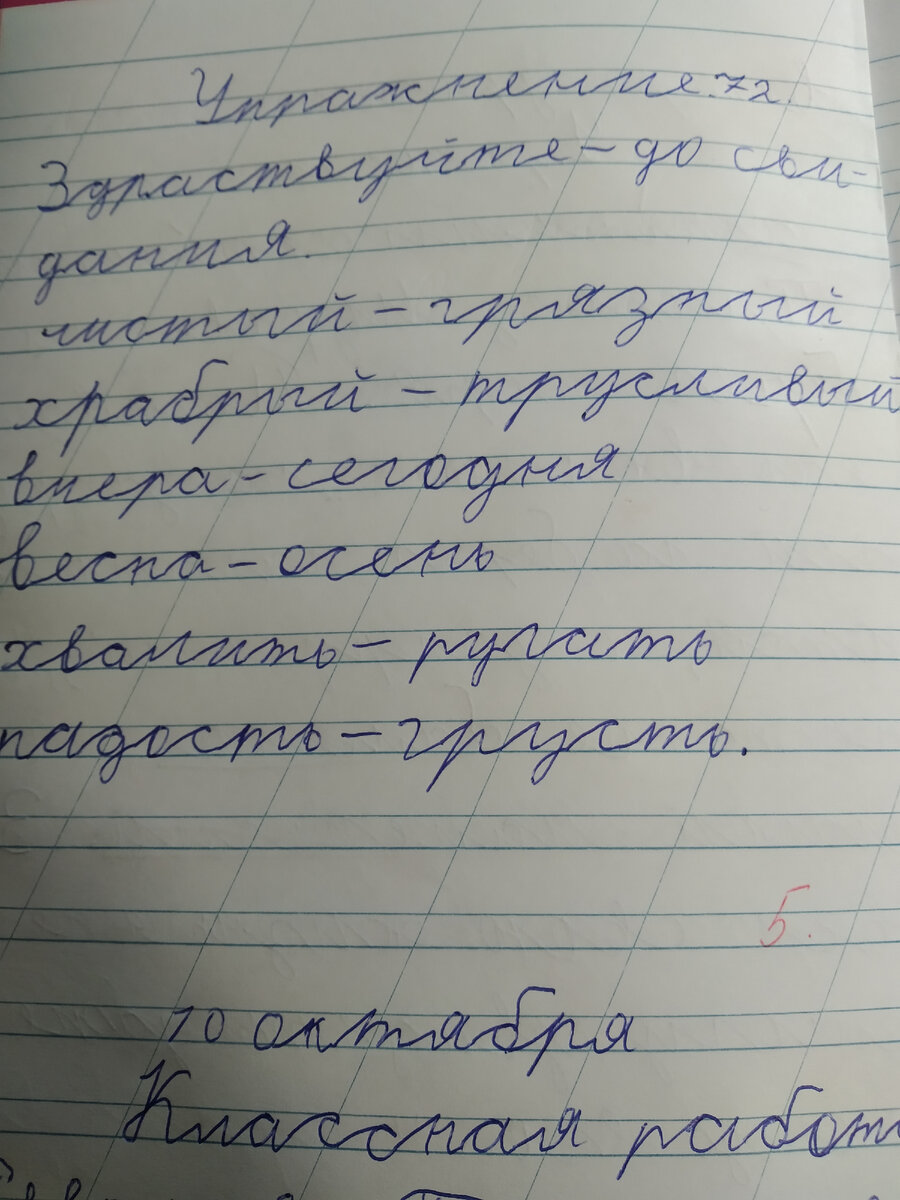 Упражнение 72.
Здраствуйте – до сви-
дания.
чистый – грязный
храбрый – трусливый
вчера – сегодня
весна – осень
хвалить – ругать
радость – грусть.
5.
10 октября
Классная работ